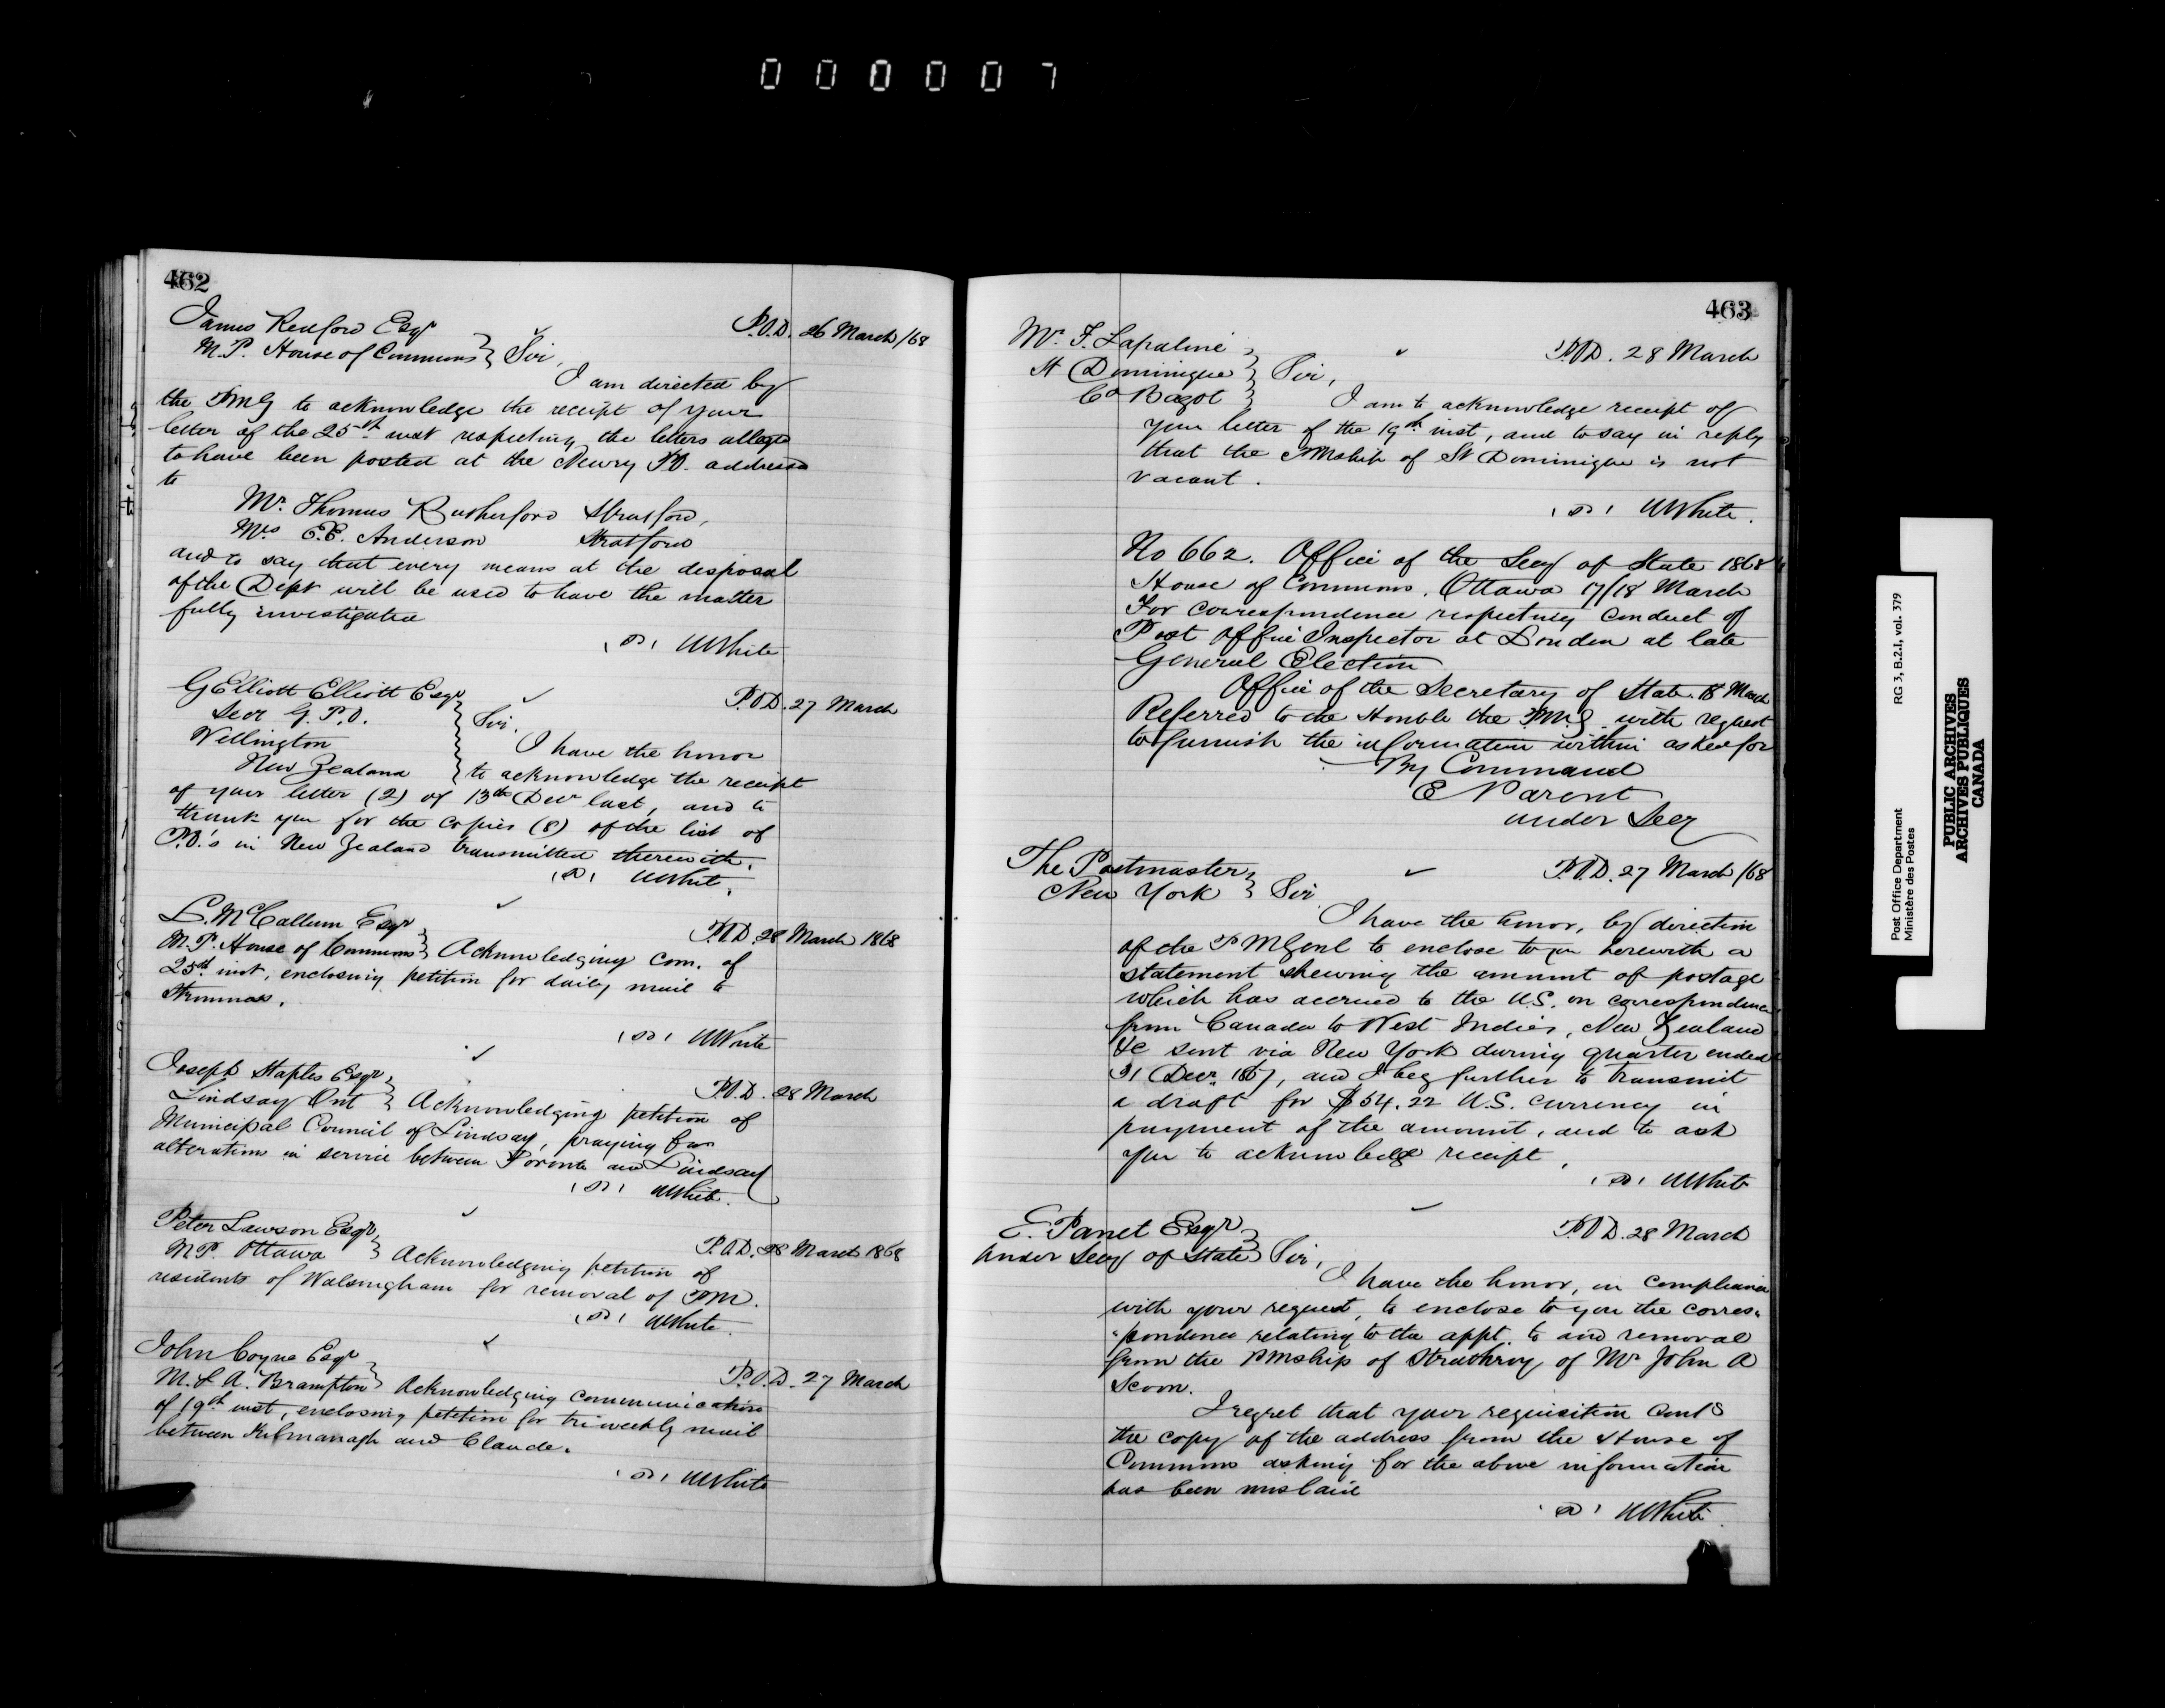 0 0 0 0 0 7
462
James Redford Esqr
P.O.D. 26 March/68
M.P. House of Commons Sir,
I am directed by
the PMG to acknowledge the receipt of your
letter of the 25th inst respecting the letters alleged
to have been posted at the Newry P.O. addressed
to
Mr. Thomas Rutherford Stratford,
Mrs E.E. Anderson Stratford
and to say that every means at the disposal
of the Dept will be used to have the matter
fully investigated
WWhite
G Elliott Elliott Esqr
P.O.D. 27 March
Secr G.P.O.
Sir,
Wellington
I have the honor
New Zealand
to acknowledge the receipt
of your letter (2) of 13th Decr last, and to
thank you for the copies (8) of the list of
P.O.'s in New Zealand transmitted therewith.
WWhite.
L. McCallum Esqr
P.O.D. 28 March 1868
M.P. House of Commons Acknowledging com. of
25th inst, enclosing petition for daily mail to
WWhite
Joseph Staples Esqr
P.O.D. 28 March
Lindsay Ont Acknowledging petition of
Municipal Council of Lindsay, praying for
alterations in service between Toronto and Lindsay
WWhite.
Peter Lawson Esqr
P.O.D. 28 March 1868
MP. Ottawa Acknowledging petition of
residents of Walsingham for removal of PM.
WWhite.
John Coyne Esqr
P.O.D. 27 March
M.L.A. Brampton Acknowledging communication
of 19th inst, enclosing petition for tri weekly mail
between Kilmanagh and Claude.
WWhite
463
Mr. F. Lapalme
P.O.D. 28 March
St Dominique Sir,
Co Bagot
I am to acknowledge receipt of
your letter of the 19th inst, and to say in reply
that the PMship of St Dominique is not
vacant.
WWhite.
No 662. Office of the Secy of State 1868
House of Commons, Ottawa 17/18 March
For correspondence respecting conduct of
Post Office Inspector at London at late
General Election
Office of the Secretary of State. 18 March
Referred to the Honble the P.M.G. with request
to furnish the information within asked for
By Command
E Parent
Under Secy
The Postmaster
P.O.D. 27 March/68
New York Sir
I have the honor, by direction
of the PMGenl to enclose to you herewith a
statement shewing the amount of postage
which has accrued to the U.S. on correspondence
from Canada to West Indies, New Zealand
&c sent via New York during quarter ended
31 Decr. 1867, and I beg further to transmit
a draft for $54.22 U.S. currency in
payment of the amount, and to ask
you to acknowledge receipt,
WWhite
E. Parent Esqr
P.O.D. 28 March
Under Secy of State Sir,
I have the honor, in compliance
with your request, to enclose to you the corres"
"pondence relating to the appt. to and removal
from the PMship of Strathroy of Mr John A
Scoon.
I regret that your requisition contg
the copy of the address from the House of
Commons asking for the above information
has been mislaid
WWhite.
Post Office Department RG 3, B.2.I, vol. 379
Ministère des Postes
PUBLIC ARCHIVES
ARCHIVES PUBLIQUES
CANADA